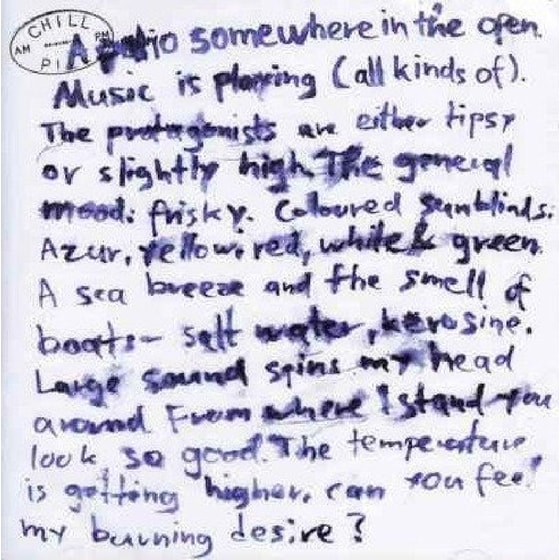 CHILL
AM PM
PILL
A patio somewhere in the open.
Music is playing (all kinds of).
The protagonists are either tipsy
or slightly high. The general
mood: frisky. Coloured sunblinds:
Azur, yellow, red, white & green.
A sea breeze and the smell of
boats - salt water, kerosine.
Large sound spins my head
around From where I stand you
look so good. The temperature
is getting higher, can you feel
my burning desire?